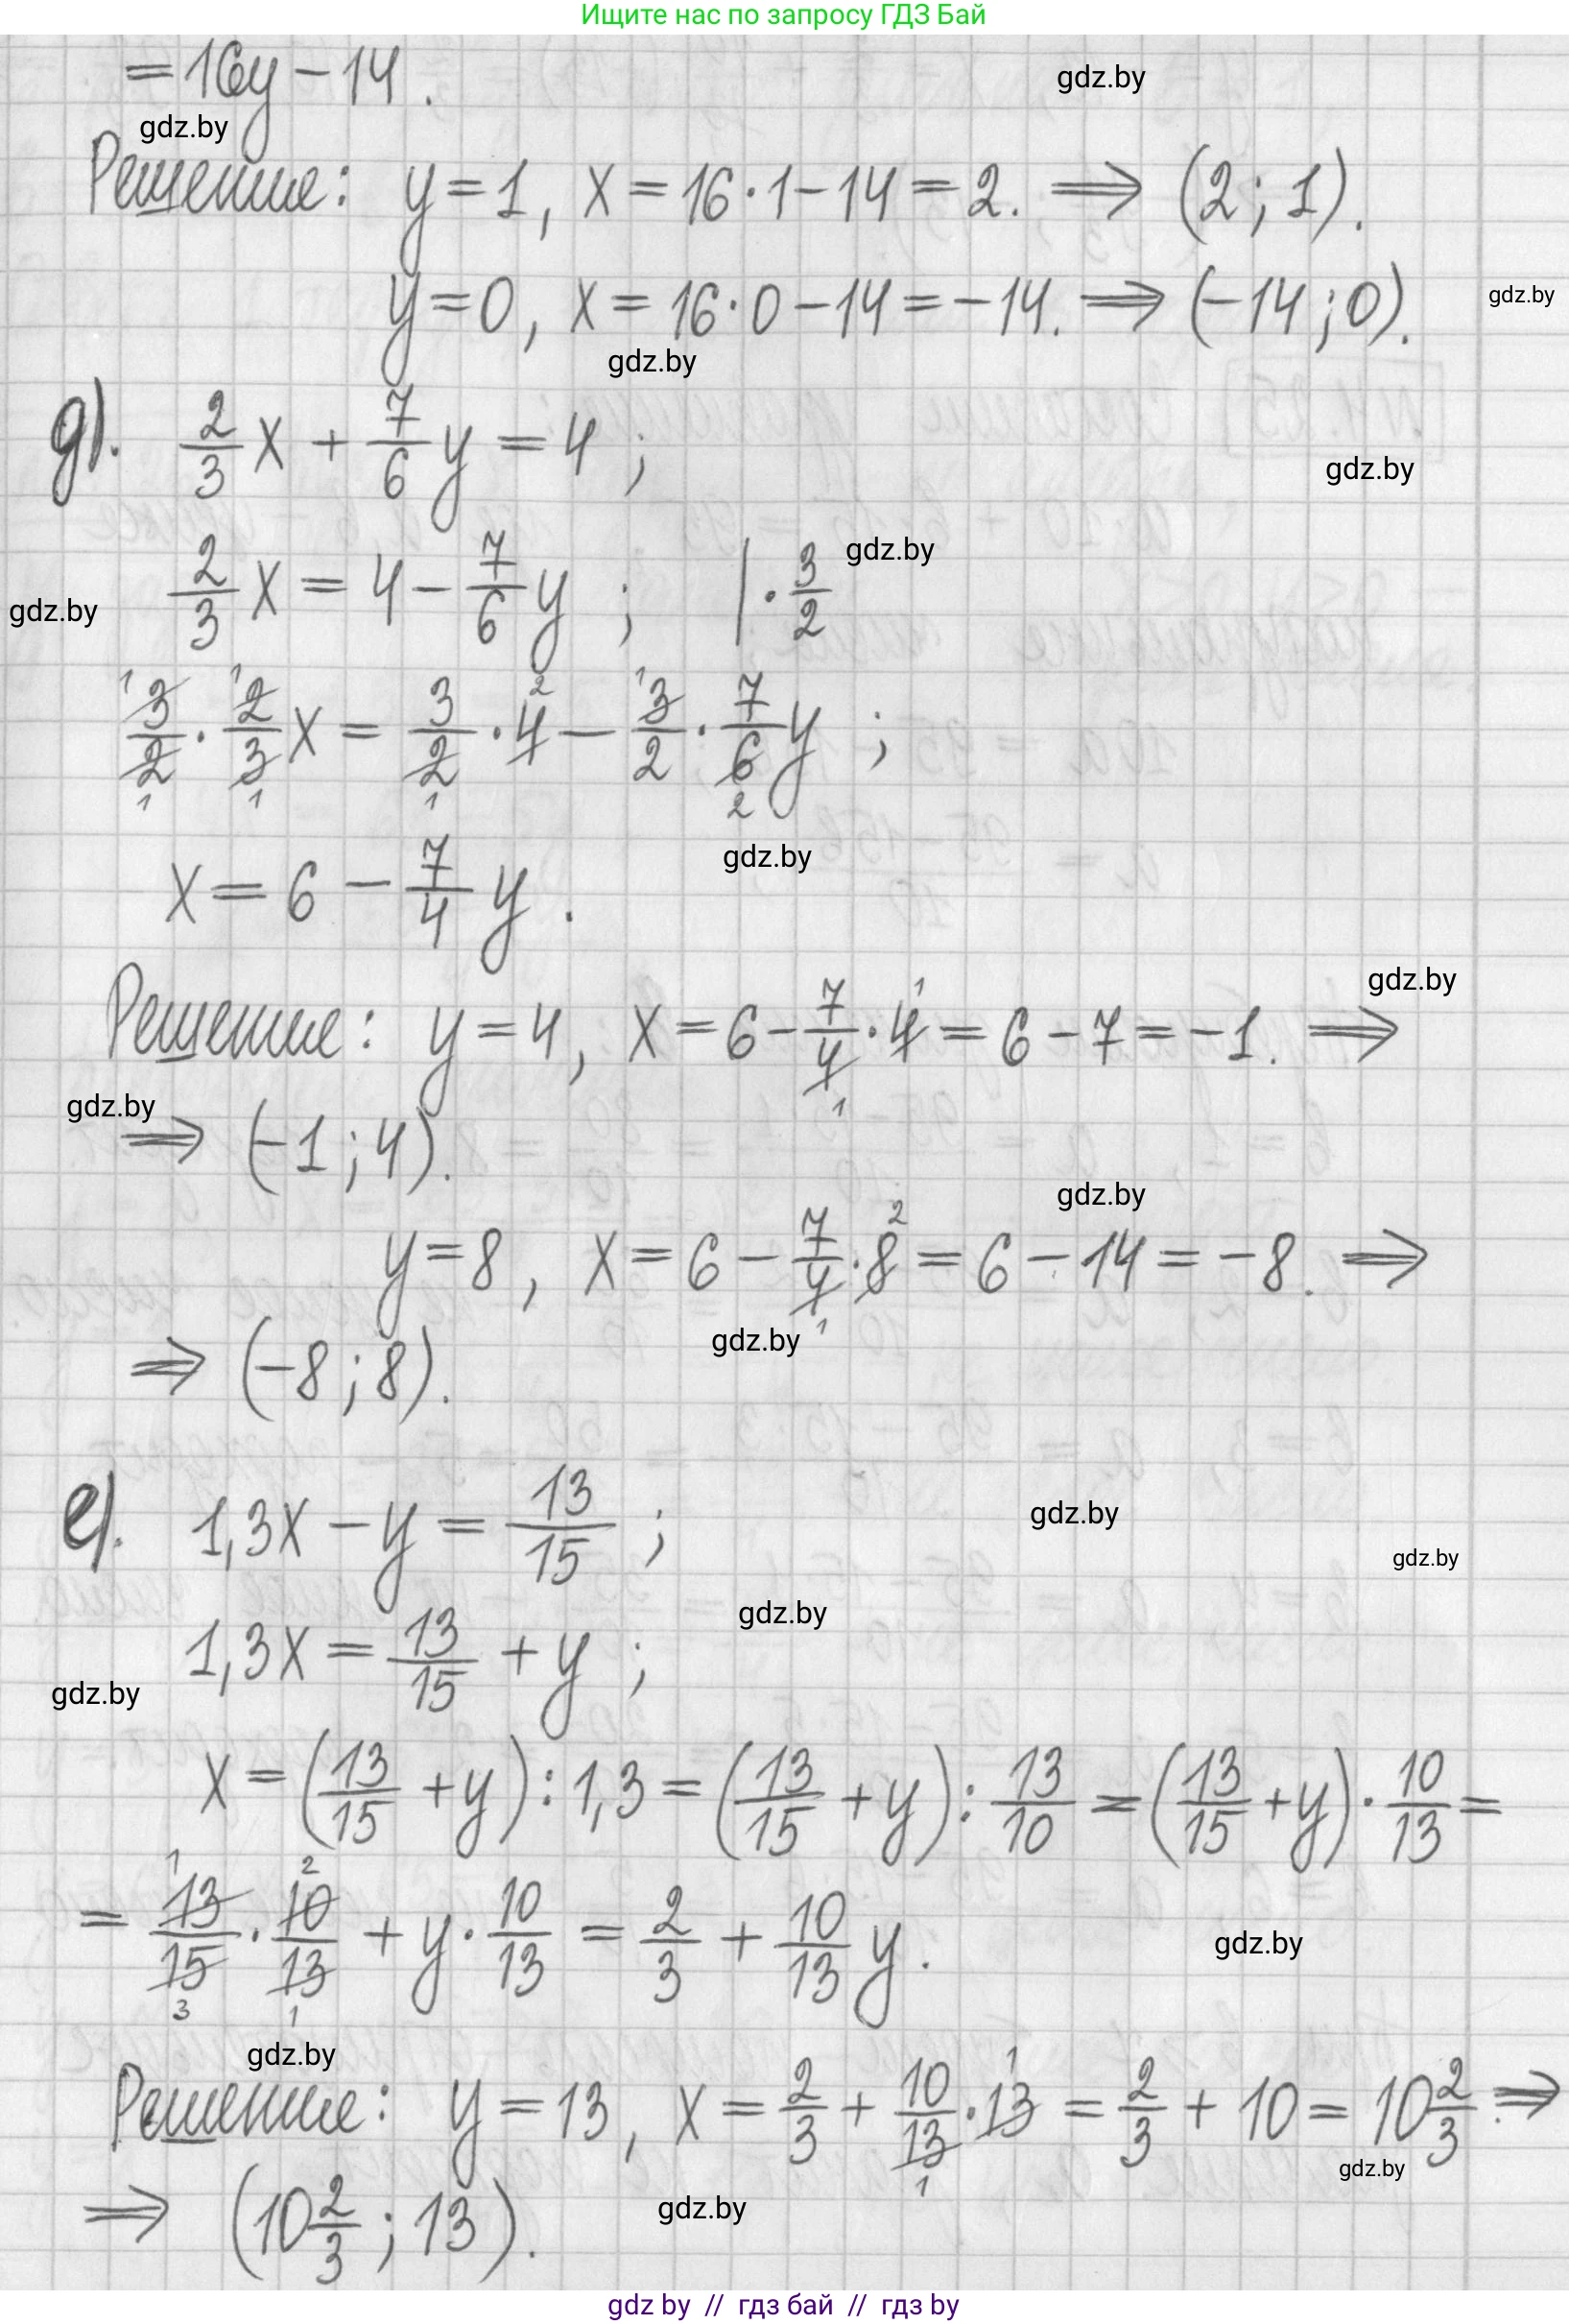 Ищите нас по запросу ГДЗ Бай
= 16y − 14.
gdz.by
gdz.by
Решение: y = 1, x = 16·1 − 14 = 2. ⟹ (2; 1).
y = 0, x = 16·0 − 14 = −14. ⟹ (−14; 0).
gdz.by
gdz.by
д). 2/3 x + 7/6 y = 4 ;
gdz.by
2/3 x = 4 − 7/6 y ; | · 3/2
gdz.by
gdz.by
3/2 · 2/3 x = 3/2 · 4 − 3/2 · 7/6 y ;
x = 6 − 7/4 y .
gdz.by
Решение: y = 4, x = 6 − 7/4 · 4 = 6 − 7 = −1. ⟹
gdz.by
gdz.by
⟹ (−1; 4).
gdz.by
y = 8, x = 6 − 7/4 · 8 = 6 − 14 = −8. ⟹
gdz.by
⟹ (−8; 8).
е). 1,3x − y = 13/15 ;
gdz.by
gdz.by
1,3x = 13/15 + y ;
gdz.by
gdz.by
x = (13/15 + y) : 1,3 = (13/15 + y) : 13/10 = (13/15 + y) · 10/13 =
= 13/15 · 10/13 + y · 10/13 = 2/3 + 10/13 y .
gdz.by
gdz.by
Решение: y = 13, x = 2/3 + 10/13 · 13 = 2/3 + 10 = 10 2/3. ⟹
gdz.by
⟹ (10 2/3 ; 13).
gdz.by
gdz by // гдз бай // гдз by